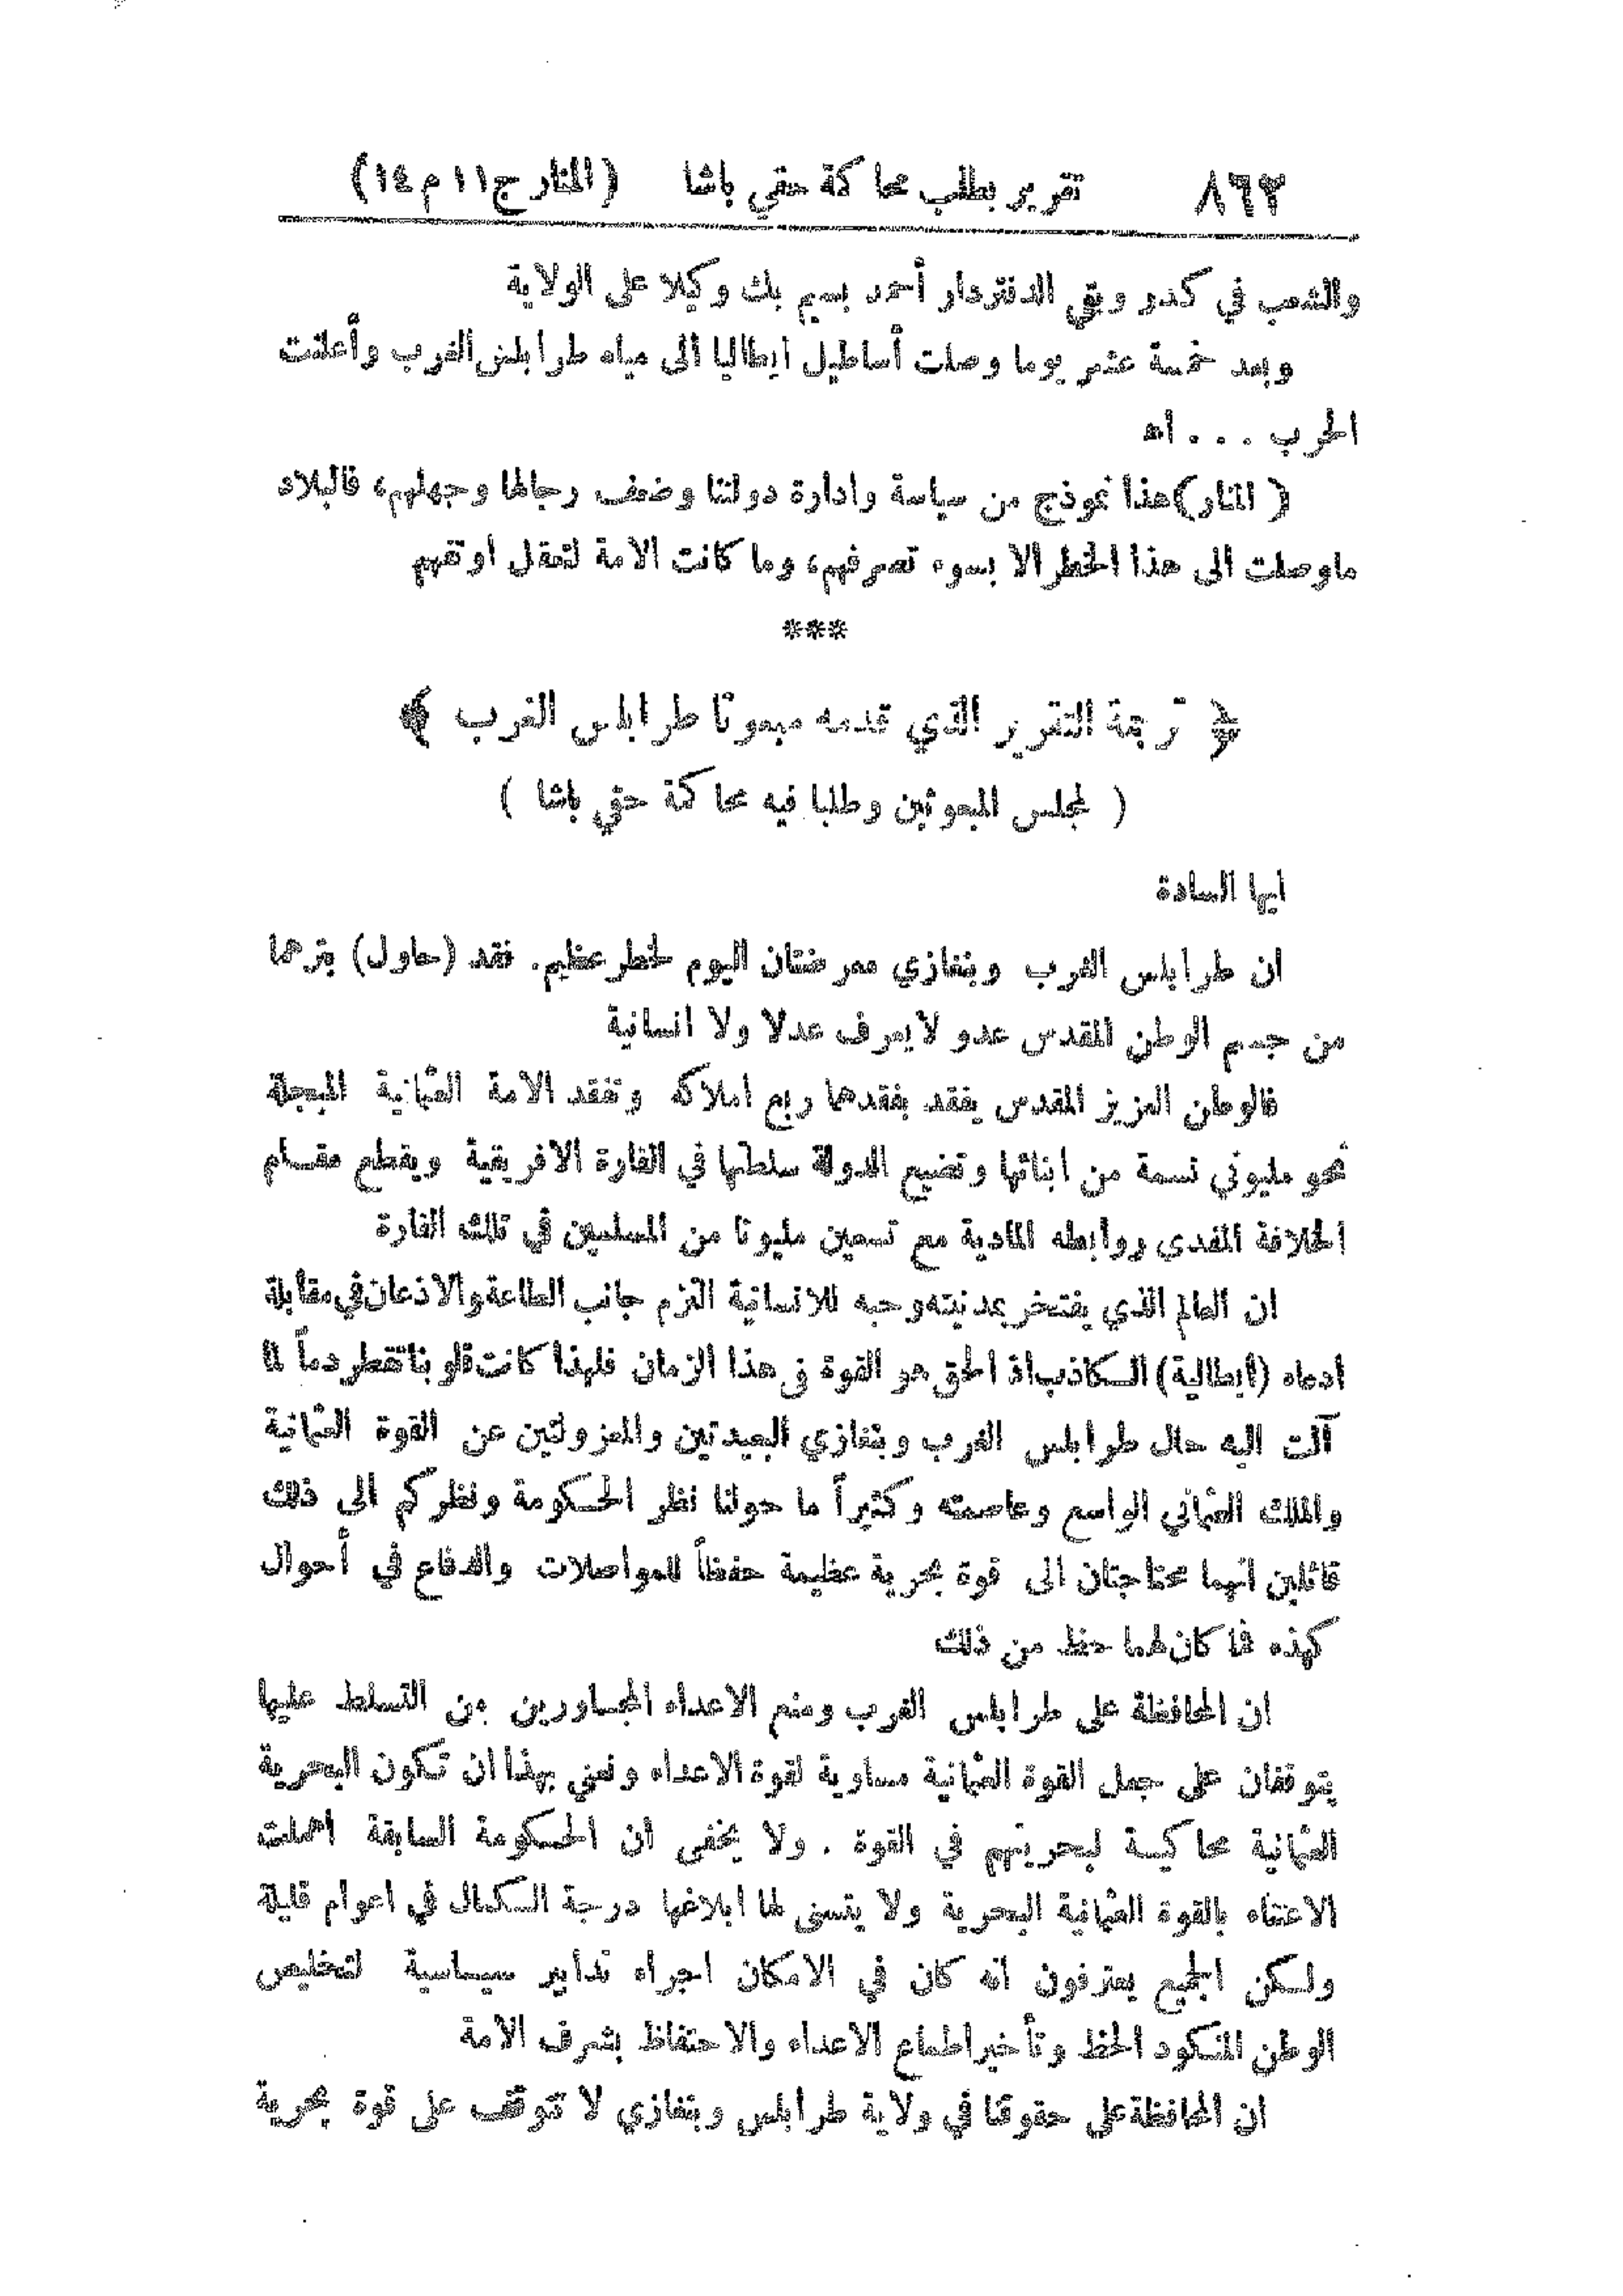 ٨٦٢ تقرير بطلب محاكمة حقي باشا (المنار ج ١١ م ١٤)
والشعب في كدر وبقي الدفتردار أحمد بسيم بك وكيلا على الولاية
وبعد خمسة عشر يوما وصلت أساطيل ايطاليا الى مياه طرابلس الغرب وأعلنت
الحرب . . . اه
( المنار) هذا نموذج من سياسة وادارة دولتنا وضعف رجالها وجهلهم، فالبلاد
ماوصلت الى هذا الخطر الا بسوء تصرفهم، وما كانت الامة لتعقل او تفهم
***
﴿ ترجمة التقرير الذي قدمه مبعوثا طرابلس الغرب ﴾
( لمجلس المبعوثين وطلبا فيه محاكمة حقي باشا )
ايها السادة
ان طرابلس الغرب وبنغازي معرضتان اليوم لخطر عظيم. فقد (حاول) بترهما
من جسم الوطن المقدس عدو لايعرف عدلا ولا انسانية
فالوطن العزيز المقدس يفقد بفقدهما ربع املاكه وتفقد الامة العثمانية المبجلة
نحو مليوني نسمة من ابنائها وتضيع الدولة سلطتها في القارة الافريقية ويقطع مقـام
الخلافة المفدى روابطه المادية مع تسعين مليونا من المسلمين في تلك القارة
ان العالم الذي يفتخر بمدنيته وحبه للانسانية التزم جانب الطاعة والاذعان في مقابلة
ادعاء (ايطالية) الـكاذب اذ الحق هو القوة في هذا الزمان فلهذا كانت قلوبنا تقطر دماً لما
آلت اليه حال طرابلس الغرب وبنغازي البعيدتين والمعزولتين عن القوة العثمانية
والملك العثماني الواسع وعاصمته وكثيراً ما حولنا نظر الحـكومة ونظركم الى ذلك
قائلين انهما محتاجتان الى قوة بحرية عظيمة حفظاً للمواصلات والدفاع في أحوال
كهذه فما كان لهما حظ من ذلك
ان المحافظة على طرابلس الغرب ومنع الاعداء المجـاورين من التسلط عليها
يتوقفان على جعل القوة العثمانية مساوية لقوة الاعداء ونعني بهذا ان تـكون البحرية
العثمانية محاكية لبحريتهم في القوة . ولا يخفى ان الحـكومة السابقة اهملت
الاعتناء بالقوة العثمانية البحرية ولا يتسنى لها ابلاغها درجة الـكمال في اعوام قليلة
ولـكن الجميع يعترفون انه كان في الامكان اجراء تدابير سيـاسية لتخليص
الوطن المنـكود الحظ وتأخير اطماع الاعداء والاحتفاظ بشرف الامة
ان المحافظة على حقوقنا في ولاية طرابلس وبنغازي لا تتوقف على قوة بحرية